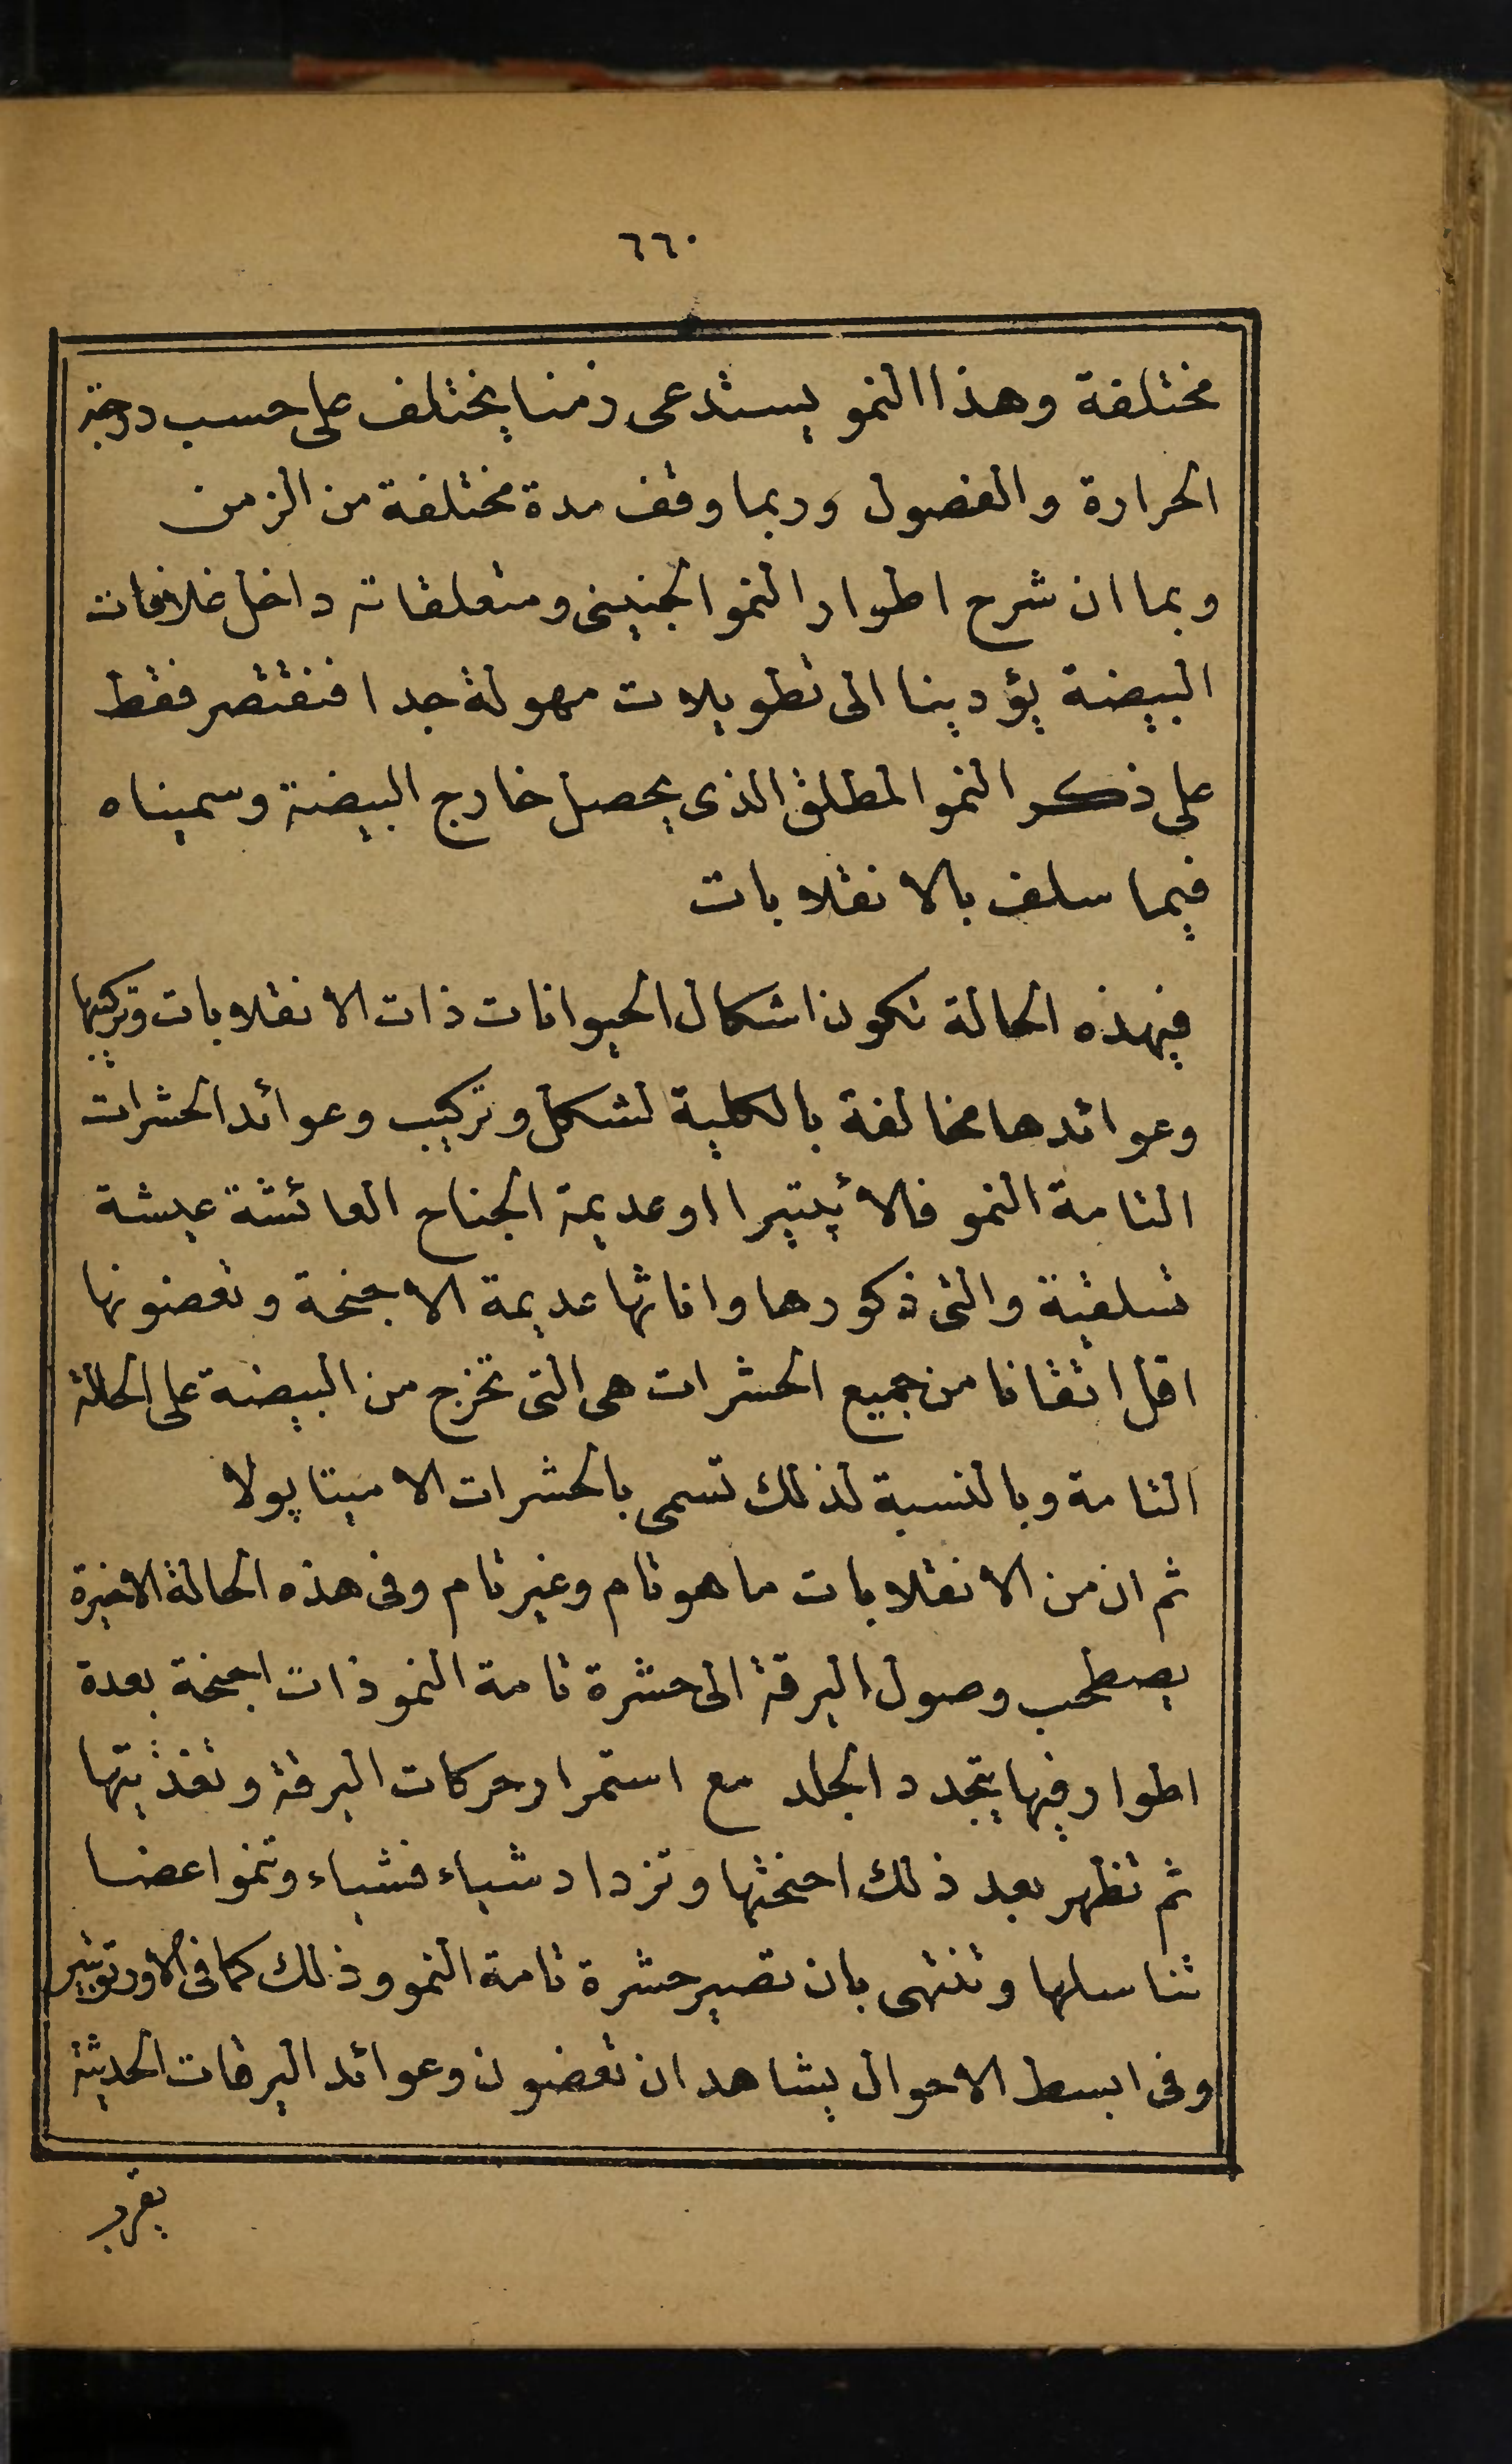 ٦٦٠
مختلفة وهذا النمو يستدعى زمنا يختلف على حسب درجة
الحرارة والفصول وربما وقف مدة مختلفة من الزمن
وبما ان شرح اطوار النمو الجنينى ومتعلقاته داخل غلافات
البيضة يؤدينا الى تطويلات مهولة جدا فنقتصر فقط
على ذكر النمو المطلق الذى يحصل خارج البيضة وسميناه
فيما سلف بالانقلابات
فبهذه الحالة تكون اشكال الحيوانات ذات الانقلابات وتركيبها
وعوائدها مخالفة بالكلية لشكل وتركيب وعوائد الحشرات
التامة النمو فالأپتيرا اوعديمة الجناح العائشة عيشة
تسلقية والتى ذكورها واناثها عديمة الاجنحة وتعضونها
اقل اتقانا من جميع الحشرات هى التى تخرج من البيضة على الحالة
التامة وبالنسبة لذلك تسمى بالحشرات الاميتاپولا
ثم ان من الانقلابات ما هو تام وغير تام وفى هذه الحالة الاخيرة
يصطحب وصول اليرقة الى حشرة تامة النمو ذات اجنحة بعدة
اطوار فيها يتجدد الجلد مع استمرار حركات اليرقة وتغذيتها
ثم تظهر بعد ذلك اجنحتها وتزداد شياء فشياء وتنمو اعضا
تناسلها وتنتهى بان تصير حشرة تامة النمو وذلك كما فى الاورتوپتير
وفى ابسط الاحوال يشاهد ان تعضون وعوائد اليرقات الحديثة
يقرب